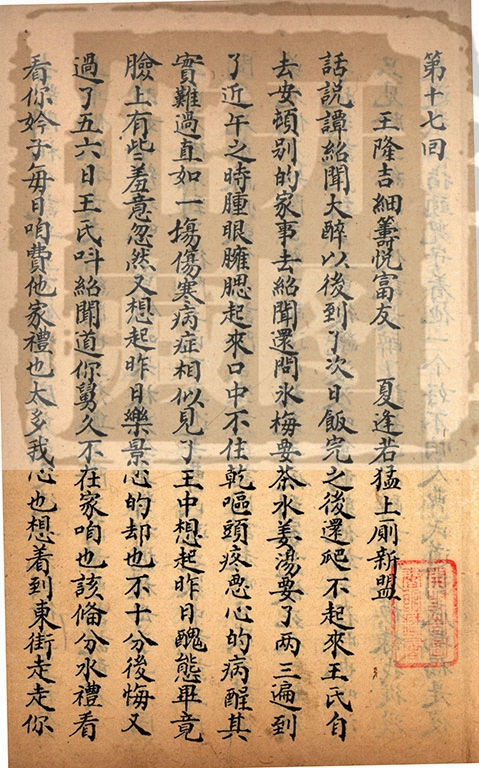 第十七回
王隆吉細籌悅富友　夏逢若猛上廁新盟
話説譚紹聞大醉以後到了次日飯完之後還爬不起來王氏自
去安頓別的家事去紹聞還問氷梅要茶水姜湯要了两三遍到
了近午之時腫眼臃腮起來口中不住乾嘔頭疼惡心的病酲其
實難過直如一塲傷寒病症相似見了王中想起昨日醜態畢竟
臉上有些羞意忽然又想起昨日樂景心的却也不十分後悔又
過了五六日王氏呌紹聞道你舅久不在家咱也該偹分水禮看
看你妗子每日咱費他家禮也太多我心也想着到東街走走你